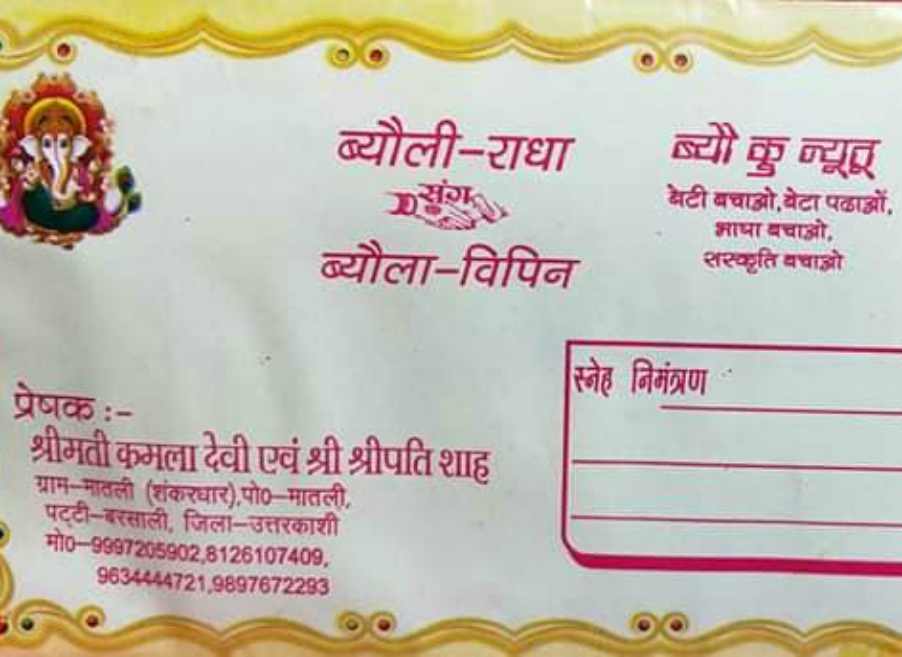 ब्यौली-राधा
संग
ब्यौला-विपिन
ब्यौ कु न्यूतू
बेटी बचाओ, बेटा पढाओं,
भाषा बचाओ,
सस्कृति बचाओ
स्नेह निमंत्रण
प्रेषक :-
श्रीमती कमला देवी एवं श्री श्रीपति शाह
ग्राम-मातली (शंकरधार), पो0-मातली,
पट्टी-बरसाली, जिला-उत्तरकाशी
मो0-9997205902,8126107409,
9634444721,9897672293